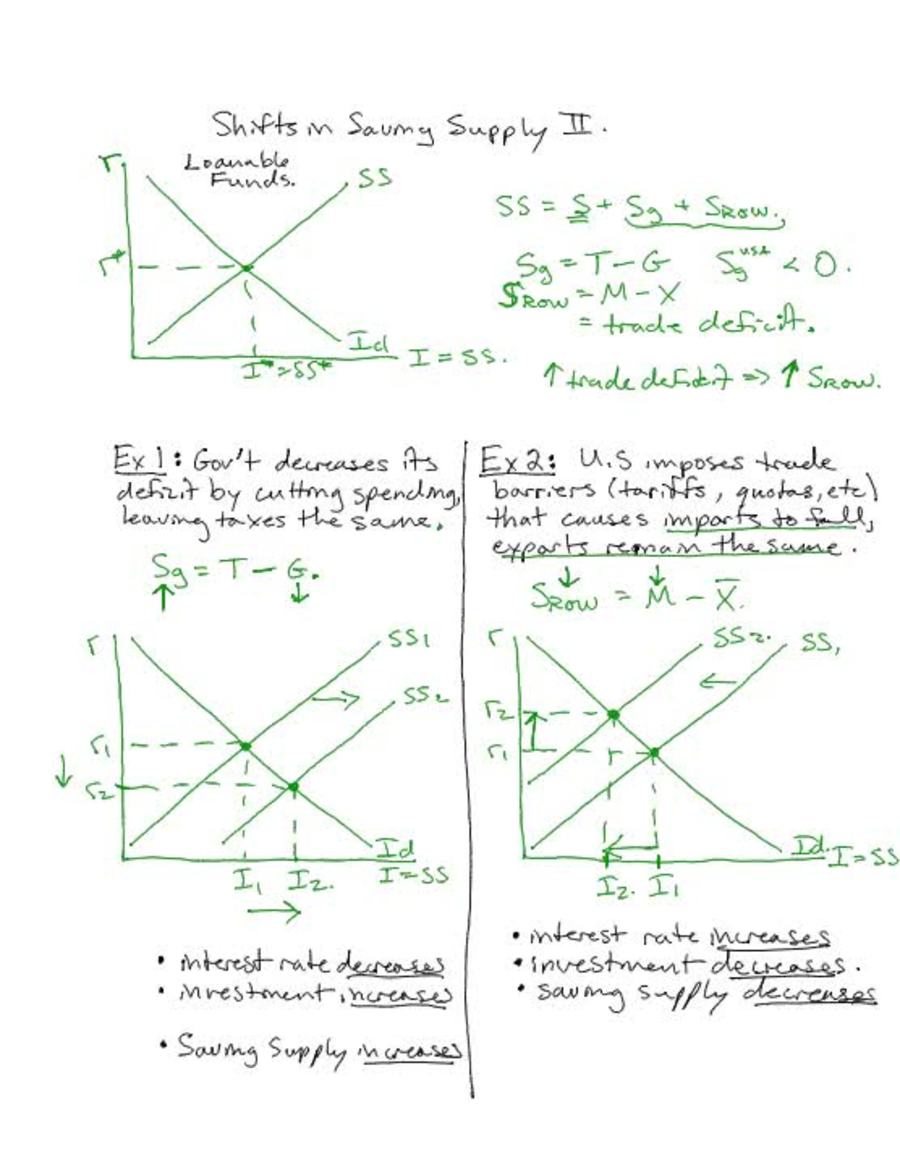 Shifts in Saving Supply II.
Loanable
Funds.
r
SS
r*
Id
I*=SS*
I = SS.
SS = S + Sg + SROW.
Sg = T - G   Sg^USA < 0.
SROW = M - X
= trade deficit.
↑ trade deficit => ↑ SROW.
Ex 1: Gov't decreases its
deficit by cutting spending,
leaving taxes the same.
Sg = T - G.
↑ ↓
r
SS1
→
SS2
r1
↓
r2
Id
I1 I2.
I=SS
→
• interest rate decreases
• investment increases
• Saving Supply increases
Ex 2: U.S imposes trade
barriers (tariffs, quotas, etc)
that causes imports to fall,
exports remain the same.
↓ ↓
SROW = M - X̅.
r
SS2.
SS1
←
r2
↑
r1
r
←
Id.
I=SS
I2. I1
• interest rate increases
• investment decreases.
• saving supply decreases